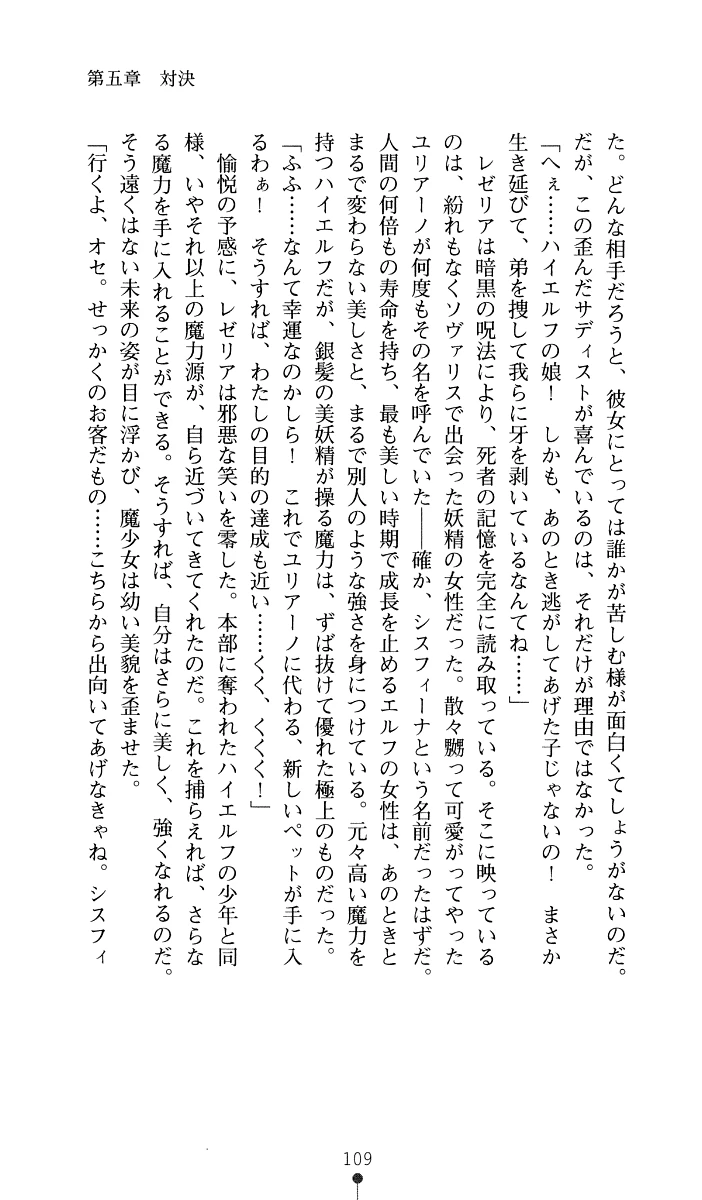 第五章　対決
た。どんな相手だろうと、彼女にとっては誰かが苦しむ様が面白くてしょうがないのだ。
だが、この歪んだサディストが喜んでいるのは、それだけが理由ではなかった。
「へぇ……ハイエルフの娘！　しかも、あのとき逃がしてあげた子じゃないの！　まさか
生き延びて、弟を捜して我らに牙を剥いているなんてね……」
　レゼリアは暗黒の呪法により、死者の記憶を完全に読み取っている。そこに映っている
のは、紛れもなくソヴァリスで出会った妖精の女性だった。散々嬲って可愛がってやった
ユリアーノが何度もその名を呼んでいた――確か、シスフィーナという名前だったはずだ。
人間の何倍もの寿命を持ち、最も美しい時期で成長を止めるエルフの女性は、あのときと
まるで変わらない美しさと、まるで別人のような強さを身につけている。元々高い魔力を
持つハイエルフだが、銀髪の美妖精が操る魔力は、ずば抜けて優れた極上のものだった。
「ふふ……なんて幸運なのかしら！　これでユリアーノに代わる、新しいペットが手に入
るわぁ！　そうすれば、わたしの目的の達成も近い……くく、くくく！」
　愉悦の予感に、レゼリアは邪悪な笑いを零した。本部に奪われたハイエルフの少年と同
様、いやそれ以上の魔力源が、自ら近づいてきてくれたのだ。これを捕らえれば、さらな
る魔力を手に入れることができる。そうすれば、自分はさらに美しく、強くなれるのだ。
そう遠くはない未来の姿が目に浮かび、魔少女は幼い美貌を歪ませた。
「行くよ、オセ。せっかくのお客だもの……こちらから出向いてあげなきゃね。シスフィ
109